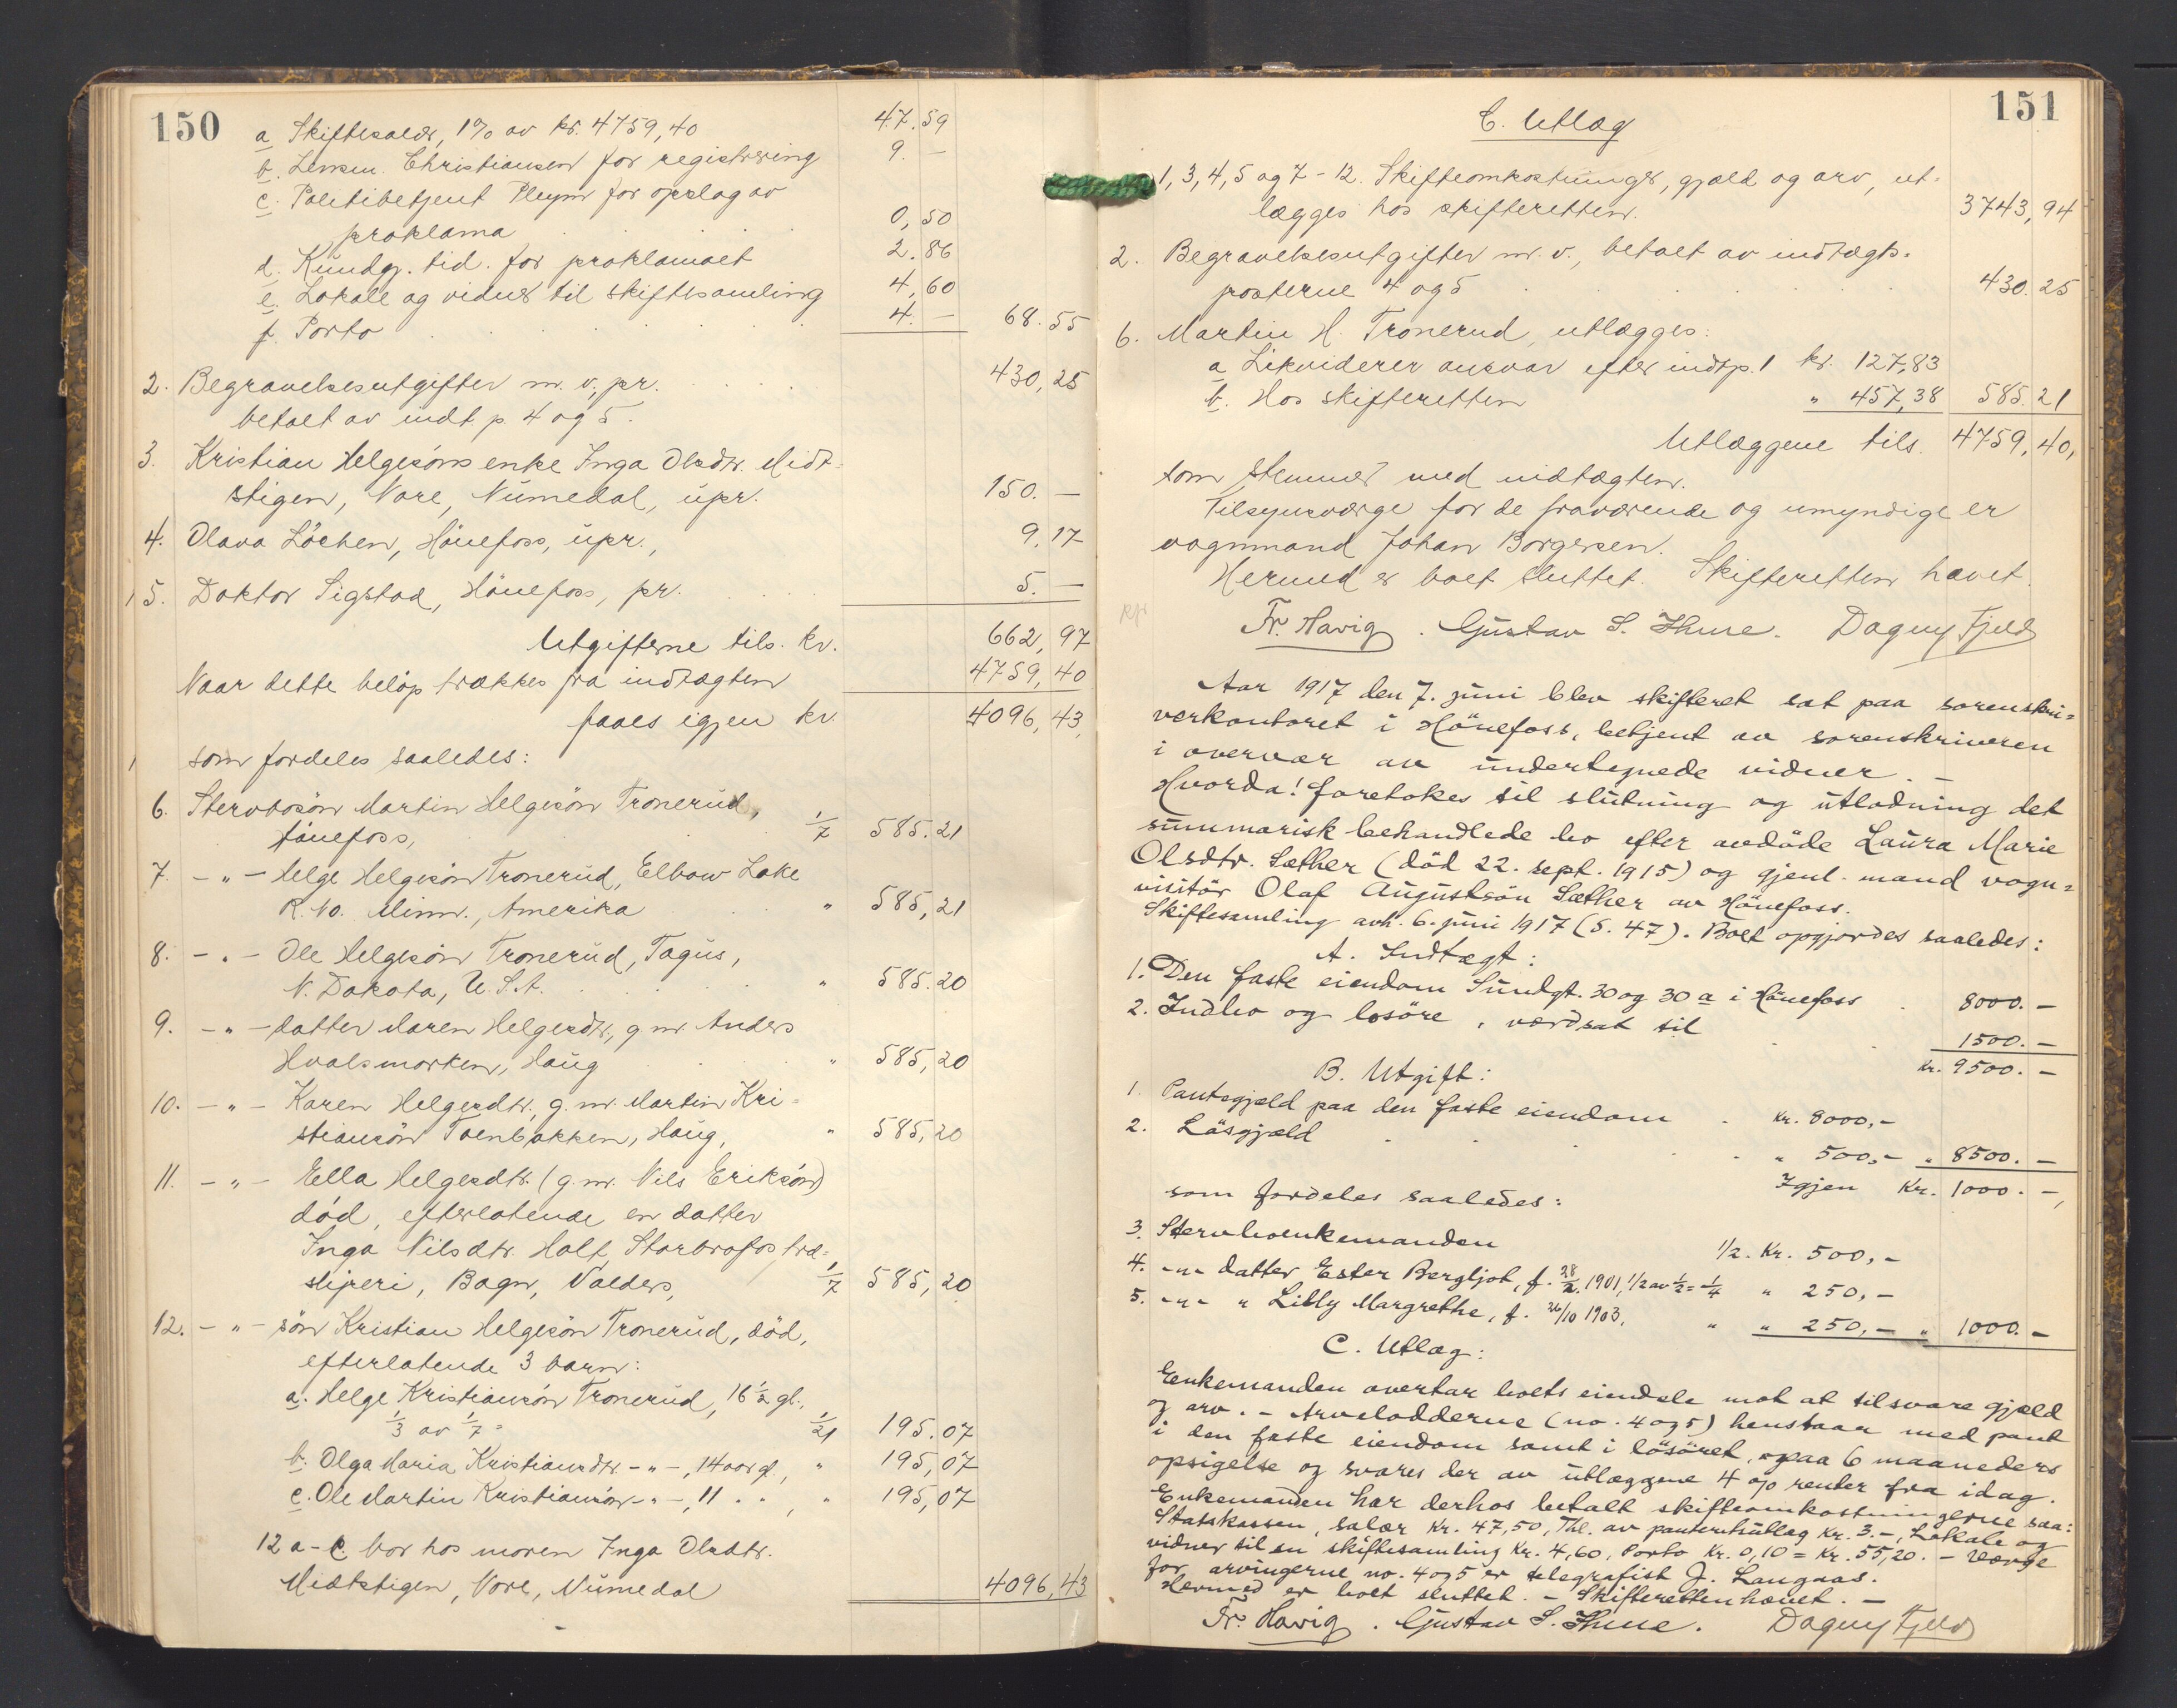 150
a Skiftesalær, 1% av kr. 4759,40 47.59
b. Lensm. Christiansen for registrering 9. —
c. Politibetjent Pleym for opslag av
proklama 0,50
d. Kundgj. tid. for proklamaet 2.86
e. Lokale og vidner til skiftesamling 4,60
f. Porto 4. — 68.55
2. Begravelsesutgifter m. v., pr.
betalt av indt. p. 4 og 5. 430,25
3. Kristian Helgesöns enke Inga Olsdtr. Midt-
stigen, Nore, Numedal, upr. 150. —
4. Olava Löchen, Hönefoss, upr., 9.17
5. Doktor Sigstad, Hönefoss, pr. 5. —
Utgifterne tils. kr. 662,97
Naar dette belöp trækkes fra indtægten 4759,40
faaes igjen kr. 4096,43,
som fordeles saaledes:
6. Stervbosön Martin Helgesön Tronerud,
Hönefoss, 1/7 585.21
7. -"- Helge Helgesön Tronerud, Elbow Lake
R. No. Minn., Amerika " 585,21
8. -"- Ole Helgesön Tronerud, Tagus,
N. Dakota, U.S.A. " 585.20
9. -"- datter Maren Helgesdtr., g. m. Anders
Hvalsmorken, Haug " 585,20
10. -"- Karen Helgesdtr., g. m. Martin Kri-
stiansön Toenbakken, Haug, " 585,20
11. -"- Ella Helgesdtr. (g. m. Nils Eriksön)
död, efterlatende en datter
Inga Nilsdtr. Holt, Storbrofos træ-
sliperi, Bagn, Valders, 1/7 585,20
12. -"- sön Kristian Helgesön Tronerud, död,
efterlatende 3 barn:
a. Helge Kristiansön Tronerud, 16½ gl.,
1/3 av 1/7 = 1/21 195.07
b. Olga Maria Kristiansdtr. -"-, 14 aar gl., " 195,07
c. Ole Martin Kristiansön -"-, 11 " ", " 195,07
12 a-c. bor hos moren Inga Olsdtr.
Midtstigen, Nore, Numedal 4096,43
151
C. Utlæg
1, 3, 4, 5 og 7-12. Skifteomkostninger, gjæld og arv, ut-
lægges hos skifteretten. 3743,94
2. Begravelsesutgifter m. v., betalt av indtægts-
posterne 4 og 5 430.25
6. Martin H. Tronerud, utlægges:
a Likviderer ansvar efter indtp. 1 kr. 127,83
b. Hos skifteretten " 457,38 585.21
Utlæggene tils. 4759,40,
som stemmer med indtægten.
Tilsynsværge for de fraværende og umyndige er
vognmand Johan Borgersen.
Hermed er boet sluttet. Skifteretten hævet.
Fr. Harig. Gustav S. Thune. Dagny Fjeld
Aar 1917 den 7. juni blev skifteret sat paa sorenskri-
verkontoret i Hönefoss, betjent av sorenskriveren
i overvær av undertegnede vidner. —
Hvorda! foretokes til slutning og utlodning det
summarisk behandlede bo efter avdöde Laura Marie
Olsdtr. Sæther (död 22. sept. 1915) og gjenl. mand vogn-
visitör Olaf Augustsön Sæther av Hönefoss.
Skiftesamling avh. 6. juni 1917 (S. 47). Boet opgjordes saaledes:
A. Indtægt:
1. Den faste eiendom Sundgt. 30 og 30 a i Hönefoss 8000. —
2. Indbo og lösöre, værdsat til 1500. —
kr. 9500. —
B. Utgift:
1. Pantegjæld paa den faste eiendom kr. 8000,-
2. Lösgjæld " 500,- " 8500. —
Igjen kr. 1000. —,
som fordeles saaledes:
3. Stervboenkemanden 1/2. Kr. 500,-
4. -"- datter Ester Bergljot, f. 28/2. 1901, 1/2 av 1/2 = 1/4 " 250,-
5. -"- " Lilly Margrethe, f. 26/10 1903, " " 250,- " 1000. —
C. Utlæg:
Enkemanden overtar boets eiendele mot at tilsvare gjæld
og arv. - Arvelodderne (no. 4 og 5) henstaar med pant
i den faste eiendom samt i lösöret, paa 6 maaneders
opsigelse og svares der av utlæggene 4 % renter fra idag.
Enkemanden har derhos betalt skifteomkostningerne saa:
Statskassen, salær kr. 47,50, Thl. av panteretsutlæg kr. 3.-, Lokale og
vidner til en skiftesamling kr. 4,60, Porto kr. 0,10 = kr. 55,20. - Værge
for arvingerne no. 4 og 5 er telegrafist J. Langaas.
Hermed er boet sluttet. - Skifteretten hævet. —
Fr. Harig. Gustav S. Thune. Dagny Fjeld